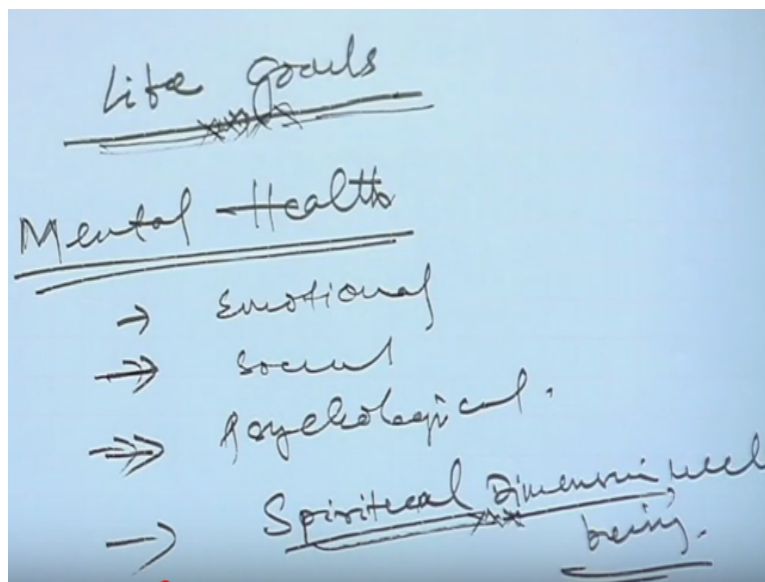 Life goals
Mental Health
→ Emotional
→ Social
→ Psychological.
→ Spiritual Dimension, well
being.